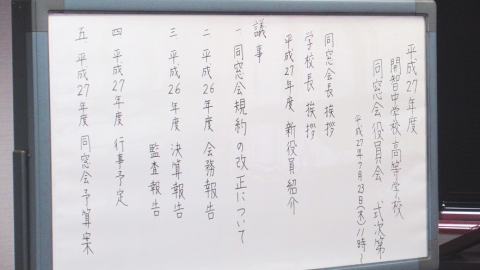 平成27年度
開智中学校高等学校
同窓会役員会 式次第
平成27年7月23日(木)11時~
同窓会長 挨拶
学校長 挨拶
平成27年度 新役員紹介
議事
一 同窓会規約の改正について
二 平成26年度 会務報告
三 平成26年度 決算報告
監査報告
四 平成27年度 行事予定
五 平成27年度 同窓会予算案